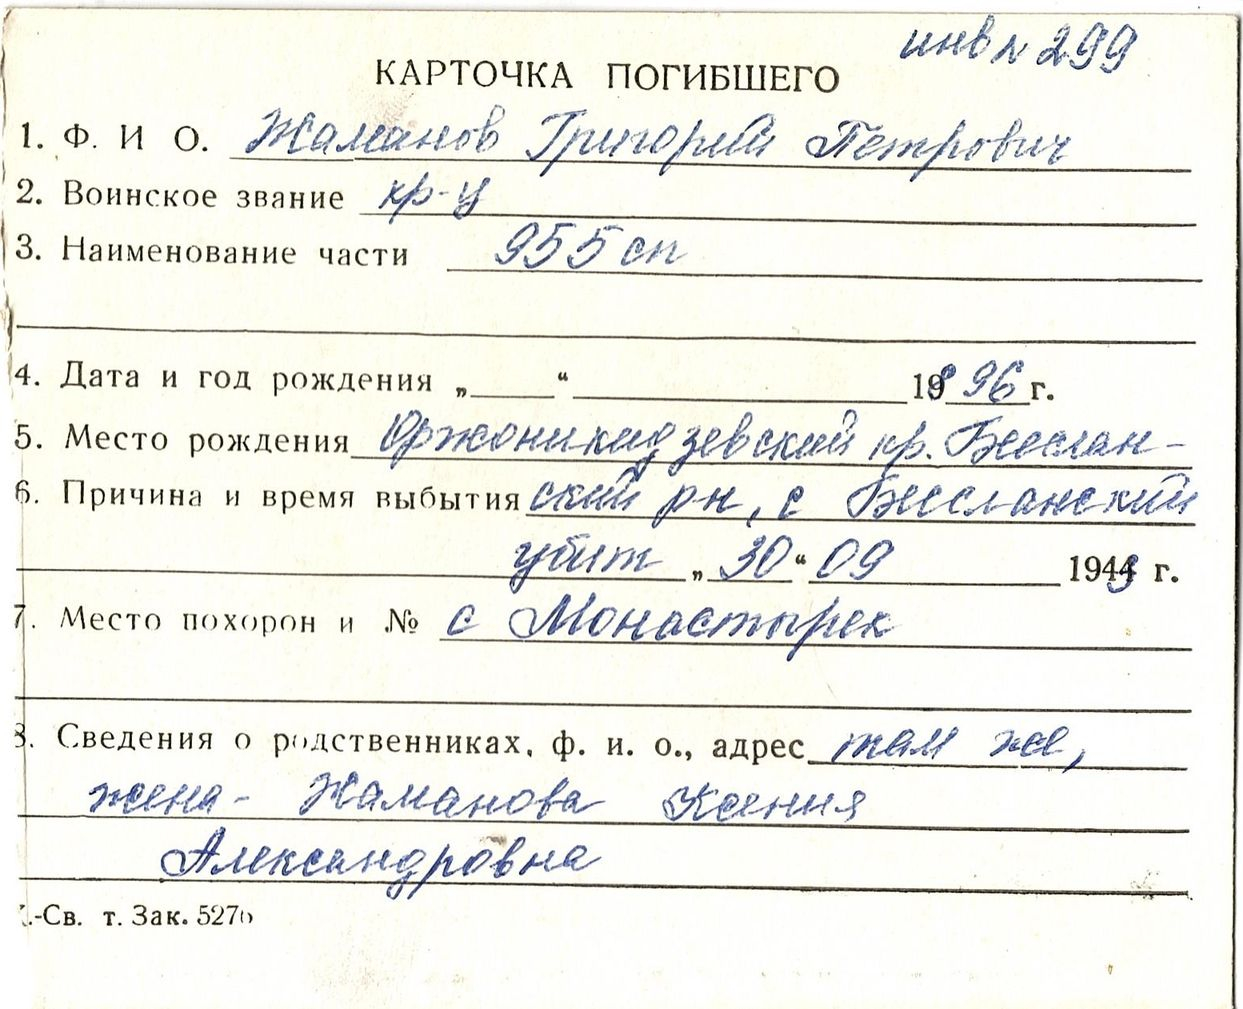 инв № 299
КАРТОЧКА ПОГИБШЕГО
1. Ф. И О. Жаманов Григорий Петрович
2. Воинское звание кр-ц
3. Наименование части 955 сп
4. Дата и год рождения „ “ 1896 г.
5. Место рождения Оржоникидзевский кр. Беслан-
6. Причина и время выбытия ский рн, с Бесланский
убит „30“ 09 1943 г.
7. Место похорон и № с Монастырек
8. Сведения о родственниках, ф. и. о., адрес там же,
жена- Жаманова Ксения
Александровна
.-Св. т. Зак. 5276